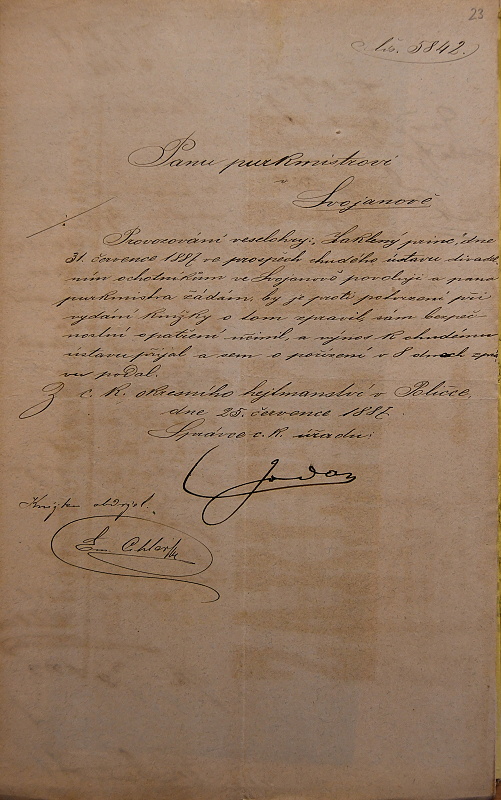 23
čís. 5842.
Panu purkmistrovi
v
Svojanově
Provozování veselohry: „Zakletý princ“, dne
31. července 1887 ve prospěch chudého ústavu divadel-
ním ochotníkům ve Svojanově povoluji a pana
purkmistra žádám, by je proti potvrzení při
vydání knížky o tom zpravil, sám bezpeč-
nostní opatření učinil, a výnos k chudému
ústavu přijal a sem o pořízení v 8 dnech zprá-
vu podal.
Z c. k. okresního hejtmanství v Poličce,
dne 25. července 1887.
Správce c. k. úřadu:
Knížku obdržel.
Em.